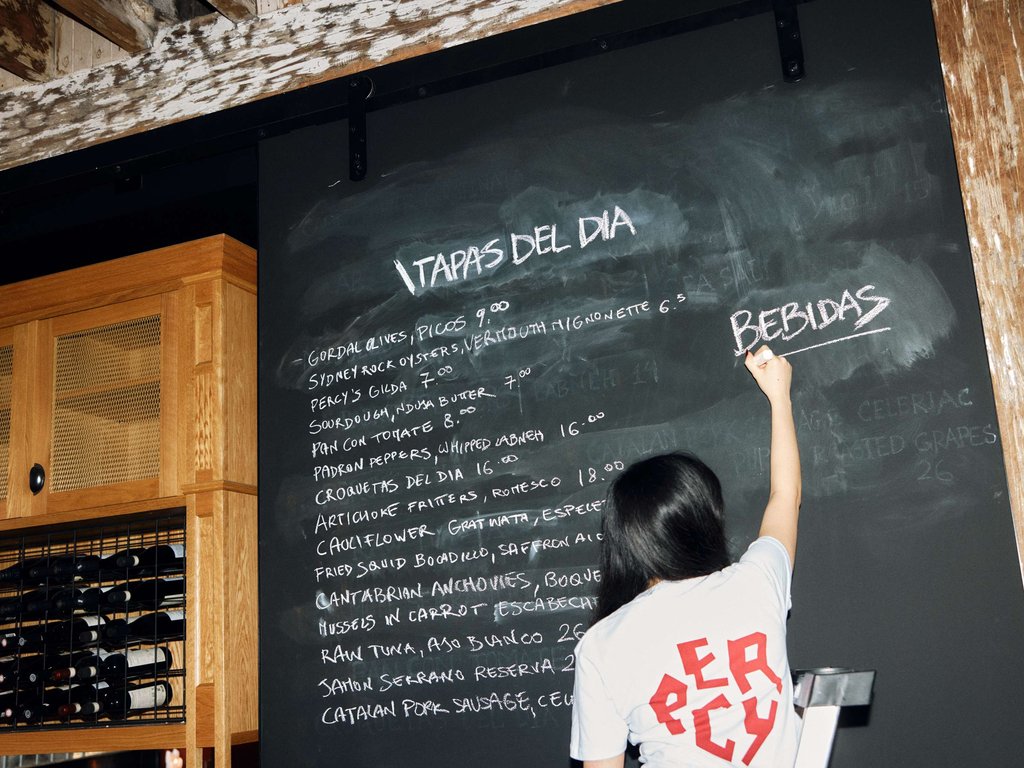 TAPAS DEL DIA
- GORDAL OLIVES, PICOS 9.00
SYDNEY ROCK OYSTERS, VERMOUTH MIGNONETTE 6.5
PERCY'S GILDA 7.00
SOURDOUGH, NDUJA BUTTER 7.00
PAN CON TOMATE 8.00
PADRON PEPPERS, WHIPPED LABNEH 16.00
CROQUETAS DEL DIA 16.00
ARTICHOKE FRITTERS, ROMESCO 18.00
CAULIFLOWER GRATINATA, ESPELE
FRIED SQUID BOCADILLO, SAFFRON AIO
CANTABRIAN ANCHOVIES, BOQUE
MUSSELS IN CARROT ESCABECH
RAW TUNA, AJO BLANCO 26
JAMON SERRANO RESERVA 2
CATALAN PORK SAUSAGE, CEL
BEBIDAS
LABNEH 14
CELERIAC
GRAPES
26
PERCY